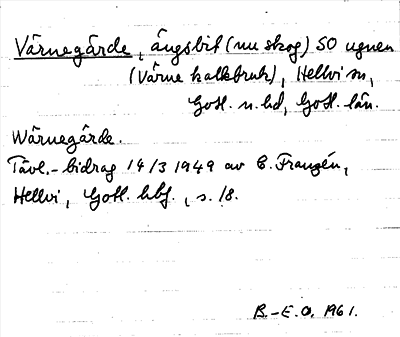 Värnegårde, ängsbit (nu skog) SO ugnen
(Värne kalkbruk), Hellvi sn,
Gotl. n. hd, Gotl. län.
Wärnegårde.
Tävl.-bidrag 14/3 1949 av C. Franzén,
Hellvi, Gotl. hbf., s. 18.
B.-E. O. 1961.